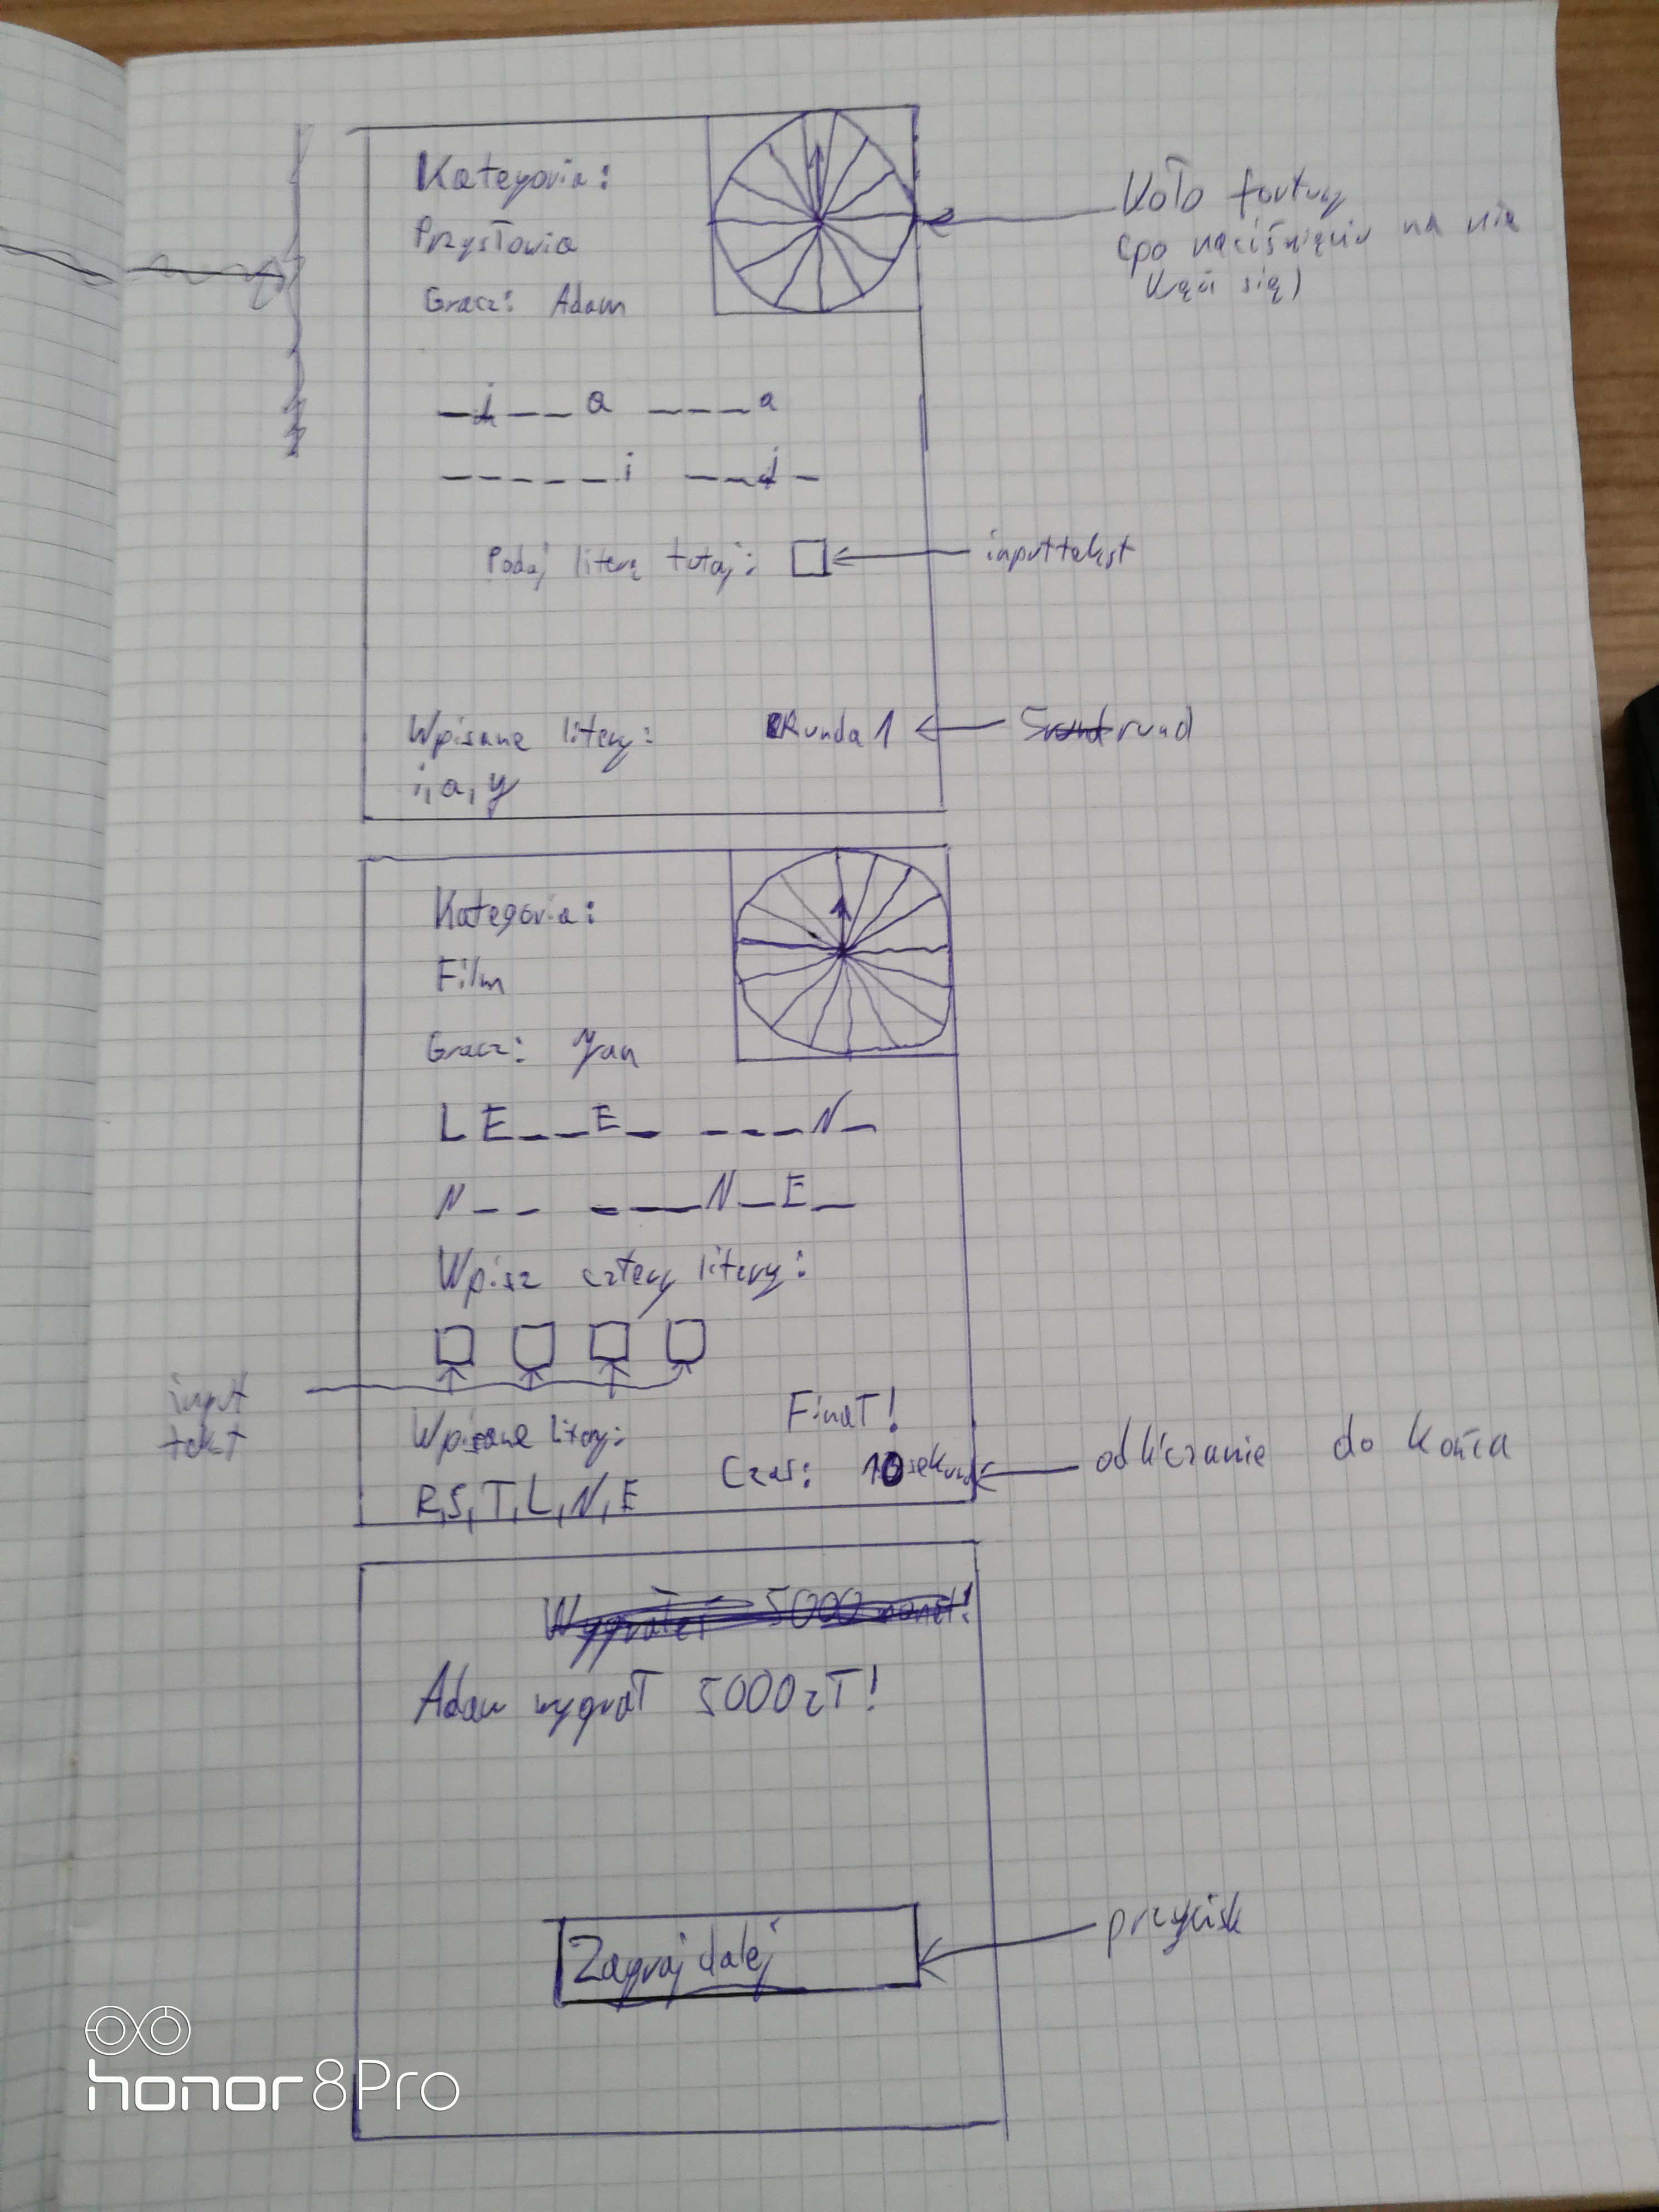 Kategoria:
Przysłowia
Gracz: Adam
Koło fortuny
(po naciśnięciu na nie
kręci się)
_i___a ____a
_____i ___i_
Podaj literę tutaj:
input tekst
Wpisane litery:
i, a, y
Runda 1
5 rund
Kategoria:
Film
Gracz: Jan
LE__E_ ___N_
N__ ___N_E_
Wpisz cztery litery:
input
tekst
Wpisane litery:
R,S,T,L,N,E
Finał!
Czas: 10 sekund
odliczanie do końca
Wygrałeś 5000 monet!
Adam wygrał 5000zł!
Zagraj dalej
przycisk
honor 8 Pro